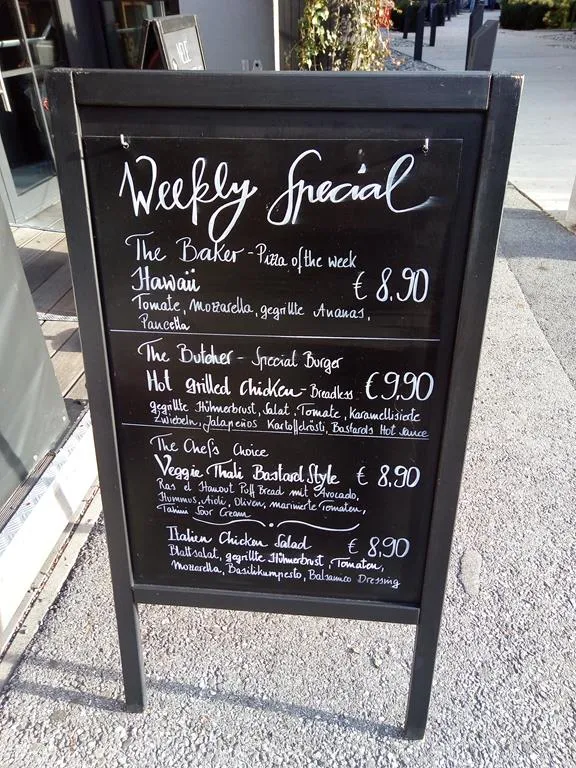 Weekly Special
The Baker - Pizza of the week
Hawaii € 8,90
Tomate, Mozzarella, gegrillte Ananas,
Pancetta
The Butcher - Special Burger
Hot Grilled Chicken - Breadless € 9,90
gegrillte Hühnerbrust, Salat, Tomate, karamellisierte
Zwiebeln, Jalapeños Kartoffelrösti, Bastards Hot Sauce
The Chefs Choice
Veggie Thali Bastard Style € 8,90
Ras el Hanout Puff Bread mit Avocado,
Hummus, Aioli, Oliven, marinierte Tomaten,
Tahini Sour Cream
Italien Chicken Salad € 8,90
Blattsalat, gegrillte Hühnerbrust, Tomaten,
Mozzarella, Basilikumpesto, Balsamico Dressing